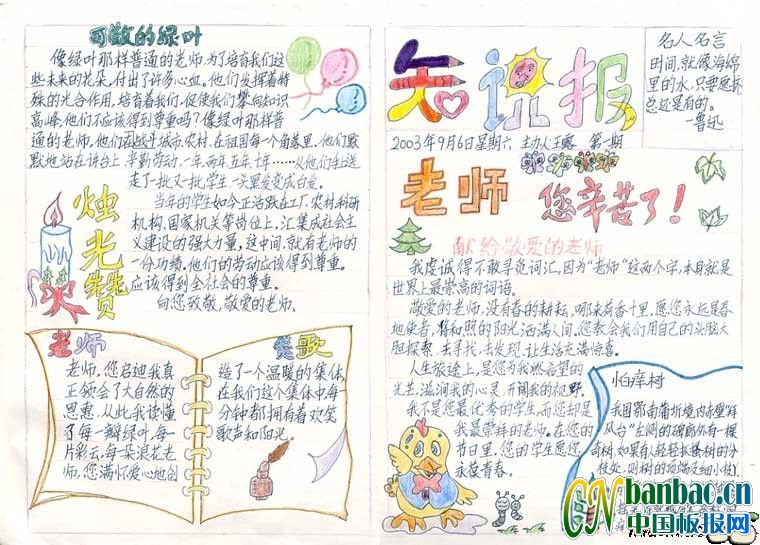 可敬的绿叶
像绿叶那样普通的老师,为了培育我们这
些未来的花朵,付出了许多心血。他们发挥着特
殊的光合作用,培育着我们,促使我们攀向知识
高峰,他们不应该得到尊重吗?像绿叶那样普
通的老师,他们 城市、农村,在祖国每一个角落里,他们默
默地站在讲台上,辛勤劳动,一年两年五年十年……从他们手上送
走了一批又一批学生,一头黑发变成白发。
当年的学生如今正活跃在工厂、农村科研
机构、国家机关等岗位上,汇集成社会主
义建设的强大力量,这中间,就有老师的
一份功绩,他们的劳动应该得到尊重。
应该得到全社会的尊重。
向您致敬,敬爱的老师。
烛光赞
老师
老师,您启迪我真
正领会了大自然的
恩惠,从此我读懂
了每一瓣绿叶,每一
片彩云,每朵浪花老
师,您满怀爱心地创
赞歌
造了一个温暖的集体,
在我们这个集体中每一
分钟都拥有着欢笑
歌声和阳光。
知识报
2003年9月6日星期六 主办人王 第一期
名人名言
时间,就像海绵
里的水,只要愿挤
总还是有的。
—鲁迅
老师 您辛苦了!
献给敬爱的老师
我虔诚得不敢寻觅词汇,因为“老师”这两个字,本身就是
世界上最崇高的词语。
敬爱的老师,没有春的耕耘,哪来荷香十里,愿您永远是春
地使者,将和照的阳光洒满人间。您教会我们用自己的头脑大
胆探索,去寻找,去发现,让生活充满惊喜。
人生旅途上,是您为我燃希望的
光芒,滋润我的心灵,开阔我的视野。
我不是您最优秀的学生,而您却是
我最崇拜的老师。在您的
节日里,您的学生愿您
永葆青春。
怕痒树
我国鄂南蒲圻境内赤壁“拜
风台”左侧的碑廊旁有一棵
奇树,如果有人轻轻 树的分
枝处,则树的顶端及细小枝
CN banbao.cn
中国板报网